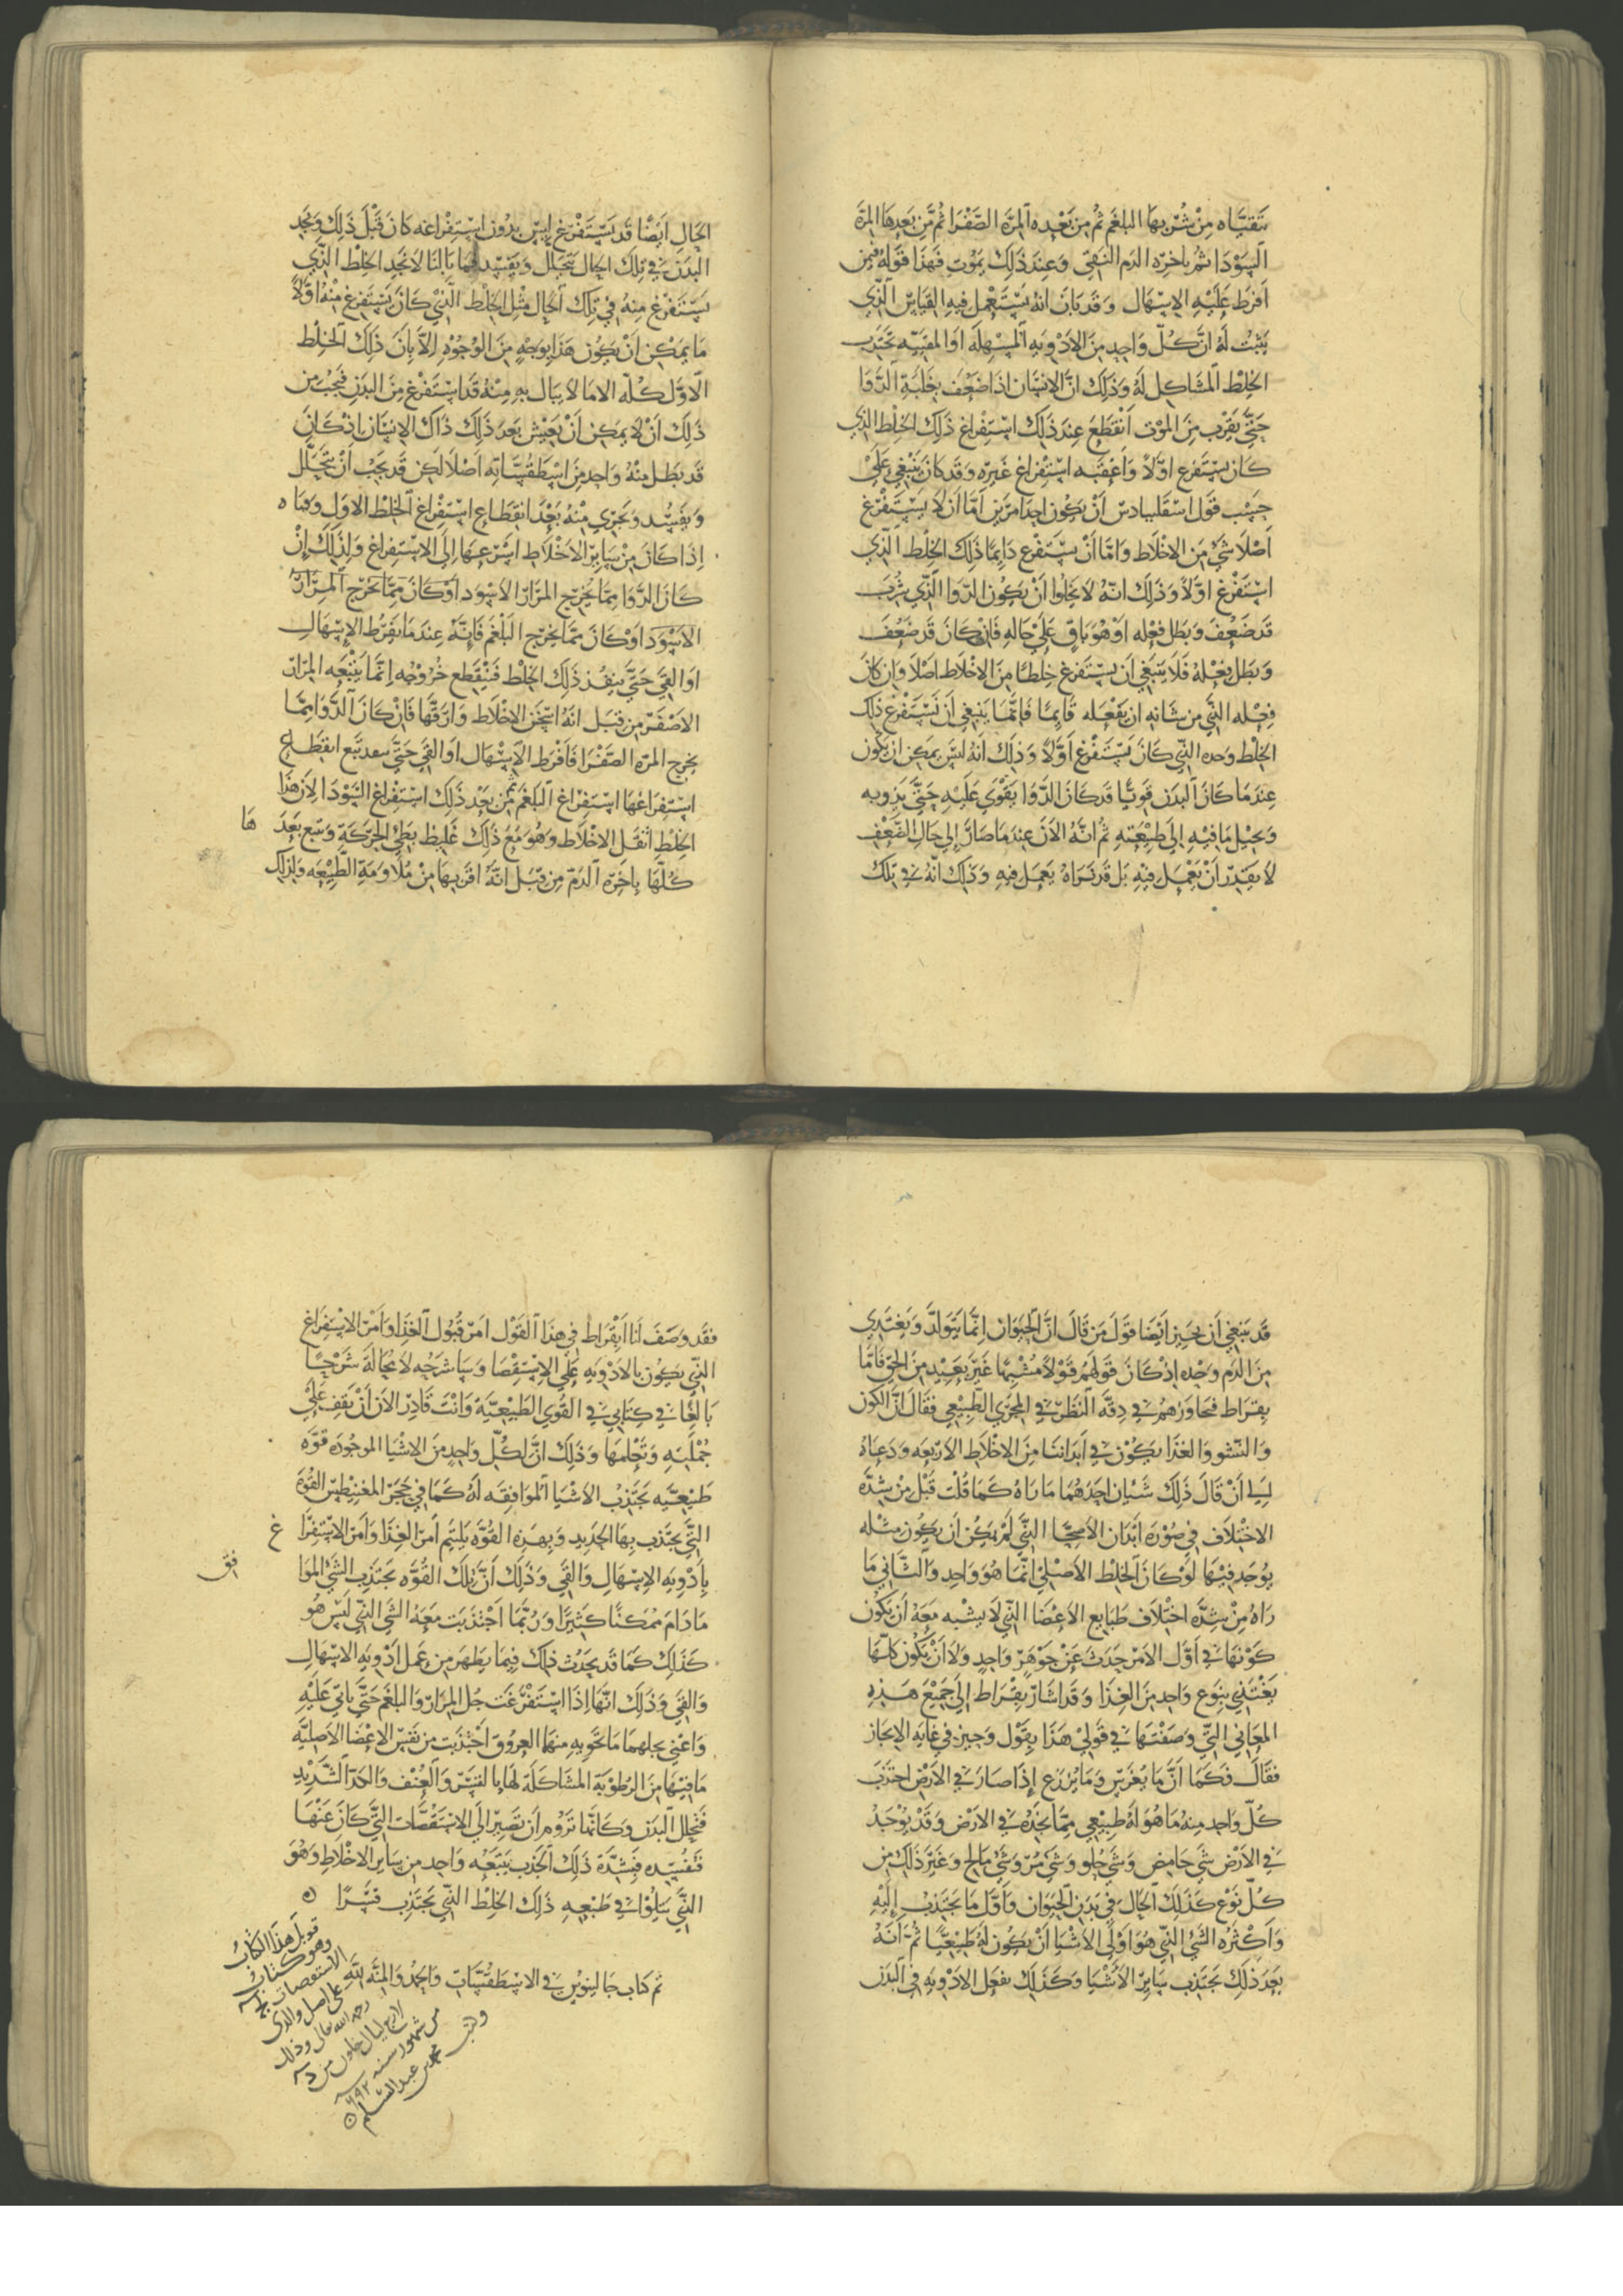 تتقيّاه من شربها البلغم ثم من بعده المرّة الصفرا ثم من بعدها المرّة
السودا ثم باخره الدم النقي وعند ذلك يموت فهذا قوله فيمن
افرط عليه الاسهال وقد بان انه يستعمل فيه القياس الذي
يثبت له ان كل واحد من الادويه المسهله او المقييه تجتذب
الخلط المشاكل له وذلك ان الانسان اذا ضعف بغلبة الدوا
حتى يقرب من الموت انقطع عند ذلك استفراغ ذلك الخلط الذي
كان يستفرغ اولا واعقبه استفراغ غيره وقد كان ينبغي على
حسب قول اسقليبادس ان يكون احد امرين اما ان لا يستفرغ
اصلا شي من الاخلاط واما ان يستفرغ دايما ذلك الخلط الذي
استفرغ اولا وذلك انه لا يخلوا ان يكون الدوا الذي شرب
قد ضعف وبطل فعله او هو باق على حاله فان كان قد ضعف
وبطل فعله فلا ينبغي ان يستفرغ خلطا من الاخلاط اصلا وان كان
فعله الذي من شانه ان يفعله قايما فانما ينبغي ان يستفرغ ذلك
الخلط وحده الذي كان يستفرغ اولا وذلك انه ليس يمكن ان يكون
عندما كان البدن قويا قد كان الدوا يقوي عليه حتى يذوبه
ويحيل ما فيه الى طبيعته ثم انه الان عندما صار الى حال الضعف
لا يقدر ان يعمل فيه بل قد نراه يعمل فيه وذلك انه في تلك
الحال ايضا قد يستفرغ ليس بدون استفراغه كان قبل ذلك ونجد
البدن في تلك الحال يتحلل ويفسد فما بالنا لا نجد الخلط الذي
يستفرغ منه في تلك الحال مثل الخلط الذي كان يستفرغ منه اولا
ما يمكن ان يكون هذا بوجه من الوجوه الا بان ذلك الخلط
الاول كله الا ما لا يبال به منه قد استفرغ من البدن فيجب من
ذلك ان لا يمكن ان يعيش بعد ذلك ذاك الانسان اذ كان
قد بطل منه واحد من اسطقسّاته اصلا لكن قد يجب ان يتحلل
ويفسد ويجري منه بعد انقطاع استفراغ الخلط الاول وفناه
اذا كان من ساير الاخلاط اسرعها الى الاستفراغ ولذلك ان
كان الدوا مما يخرج المرار الاسود او كان مما يخرج المرار
الاسود او كان مما يخرج البلغم فانه عندما يفرط الاسهال
او القي حتى ينفذ ذلك الخلط فينقطع خروجه انما يتبعه المرار
الاصفر من قبل انه اسخن الاخلاط وارقها فان كان الدوا مما
يخرج المره الصفرا فافرط الاسهال او القي حتى بعد تبع انقطاع
استفراغها استفراغ البلغم ثم من بعد ذلك استفراغ السودا لان هذا
الخلط اثقل الاخلاط وهو مع ذلك غليظ بطي الحركة وتتبع بعدَ ها
كلها باخرة الدم من قبل انه اقربها من ملاومة الطبيعه ولذلك
قد ينبغي ان نجيز ايضا قول من قال ان الحيوان انما يتولد ويغتذي
من الدم وحده اذ كان قولهم قولا مشبها غير بعيد من الحق فاما
بقراط فجاوزهم في دقة النظر في المجرى الطبيعي فقال ان الكون
والنشو والغذا يكون في ابداننا من الاخلاط الاربعه ودعاه
الى ان قال ذلك شيان احدهما ما راه كما قلت قبل من شدة
الاختلاف في صورة ابدان الاصحا التي لم يكن ان يكون مثله
يوجد فيها لو كان الخلط الاصلي انما هو واحد والثاني ما
راه من شدة اختلاف طبايع الاعضا التي لا يشبه معه ان يكون
كونها في اول الامر حدث عن جوهر واحد ولا ان يكون كلها
يغتذي بنوع واحد من الغذا وقد اشار بقراط الى جميع هذه
المعاني التي وصفتها في قولي هذا بقول وجيز في غايه الايجاز
فقال فكما ان ما يغرس وما يزرع اذا صار في الارض اجتذب
كل واحد منه ما هو له طبيعي مما يجده في الارض وقد يوجد
في الارض شي حامض وشي حلو وشي مر وشي مالح وغير ذلك من
كل نوع كذلك الحال في بدن الحيوان واول ما يجتذب اليه
واكثره الشي الذي هو اولى الاشيا ان يكون له طبيعيا ثم انه
بعد ذلك يجتذب ساير الاشيا وكذلك يفعل الادويه في البدن
فقد وصف انا ابقراط في هذا القول امر قبول الغذا وامر الاستفراغ
الذي يكون بالادويه على الاستقصا وساشرحه لا محالة شرحا
بالغا في كتابي في القوى الطبيعيّة وانت قادر الان ان تقف على
جمليه وتعلمها وذلك ان لكل واحد من الاشيا الموجوده قوه
طبيعيه تجتذب الاشيا الموافقه له كما في حجر المغنيطس القوة
التي يجتذب بها الحديد وبهذه القوه يليم امر الغذا وامر الاستفرا غ
بادويه الاسهال والقي وذلك ان تلك القوه تجتذب الشي الموا فق
ما دام ممكنا كثيرا وربما اجتذبت معه الشي الذي ليس هو
كذلك كما قد يحدث ذلك فيما يظهر من عمل ادويه الاسهال
والقي وذلك انها اذا استفرغت جل المرار والبلغم حتى ياتي عليه
واعني بجلهما ما تحويه منهما العروق اجتذبت من نفس الاعضا الاصليه
ما فيها من الرطوبة المشاكلة لها بالقسر والعنف والحد الشديد
فتحلل البدن وكانما تروم ان تصير الى الاستقصات التي كان عنها
فتفسده فبشدة ذلك الجذب يتبعه واحد من ساير الاخلاط وهو
الذي يتلوا في طبعه ذلك الخلط الذي يجتذب قسرا
تم كتاب جالينوس في الاسطقسّات والحمد والمنّه لله
قوبل هذا الكتاب
وهو كتاب
الاستقصات لج
على اصل والدي
رحمه الله تعالى وذلك
لاربع ليال خلون من
من شهور سنه ٦٩٢
وكتب محمد بن عبد السلم